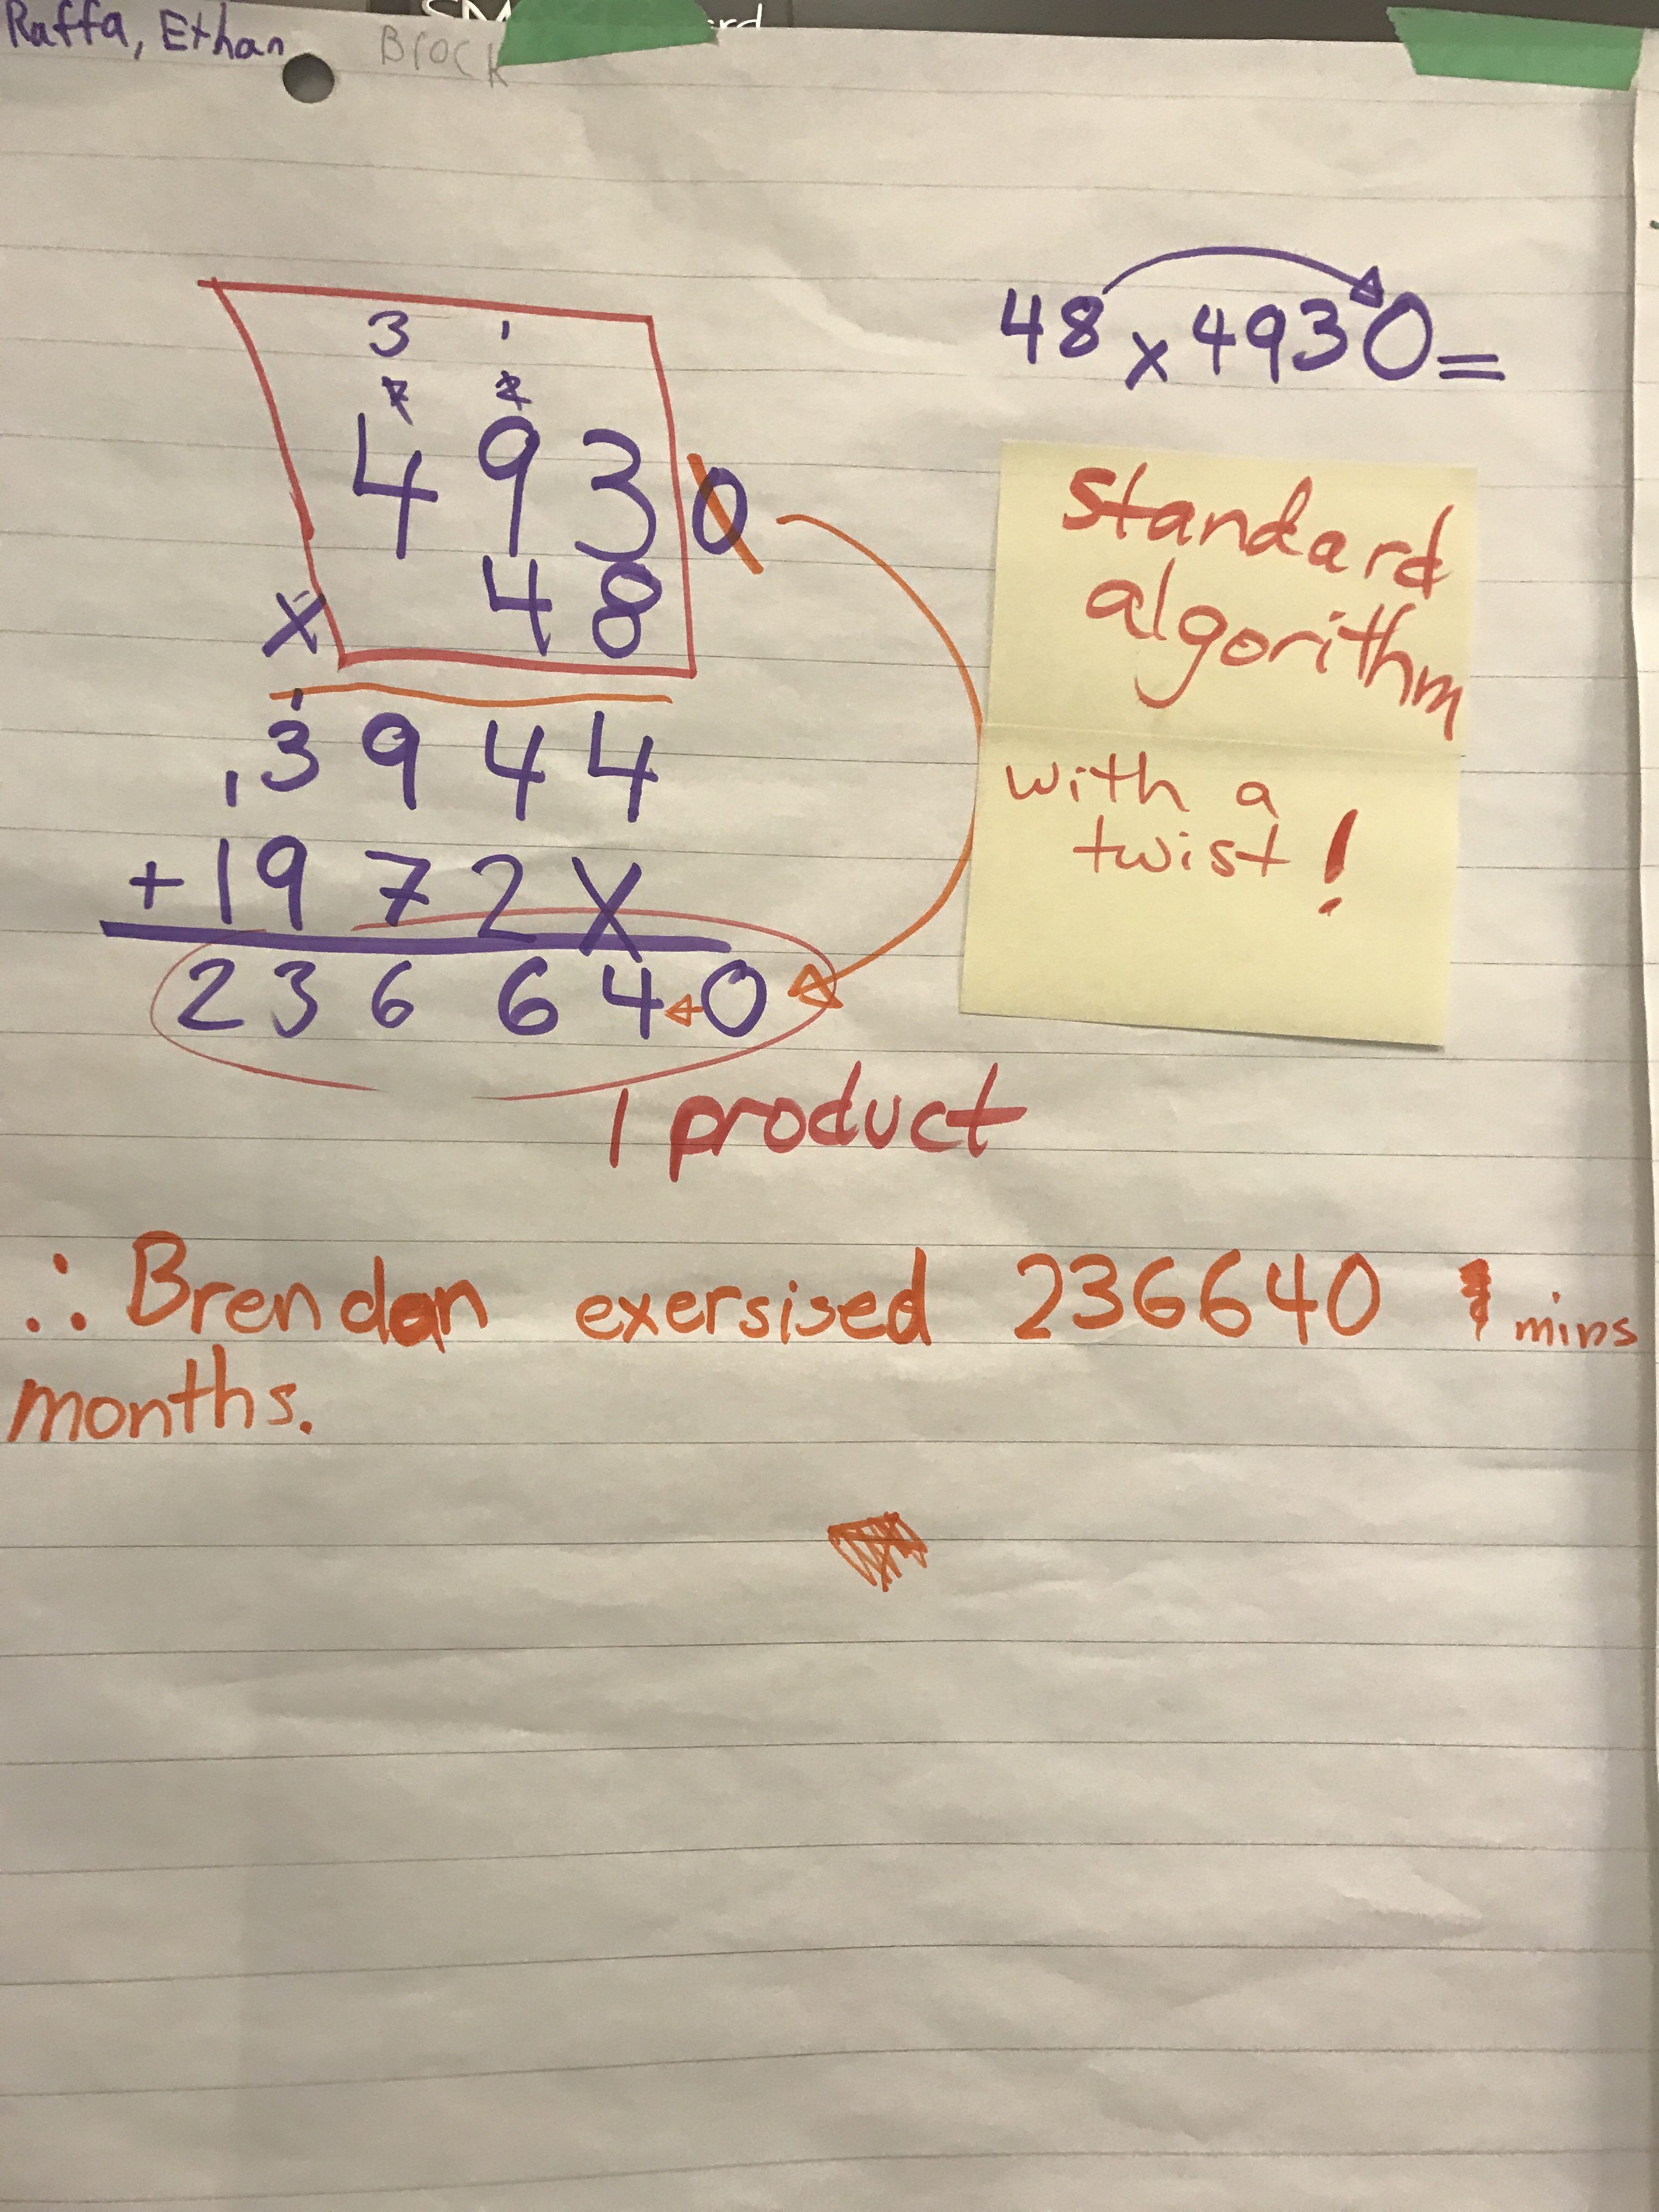 Raffa, Ethan Brock
48 x 4930 =
3 1
4930
x 48
1
3944
1
+ 1972X
236640
1 product
standard
algorithm
with a
twist!
∴ Brendan exersised 236640 mins
months.